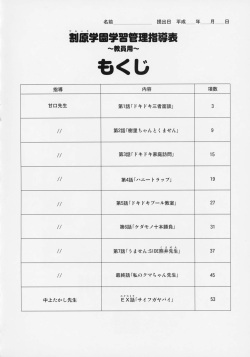 名前 提出日 平成 年 月 日
割原学園学習管理指導表
〜教員用〜
もくじ
指導 内容 項数
甘口先生 第1話「ドキドキ三者面談」 3
〃 第2話「樹里ちゃんとくません」 9
〃 第3話「ドキドキ家庭訪問」 15
〃 第4話「ハニートラップ」 19
〃 第5話「ドキドキプール教室」 27
〃 第6話「ケダモノ十本勝負」 31
〃 第7話「うません」 37
〃 最終話「私のクマちゃん先生」 45
中上たかし先生 EX話「サイフガヤバイ」 53